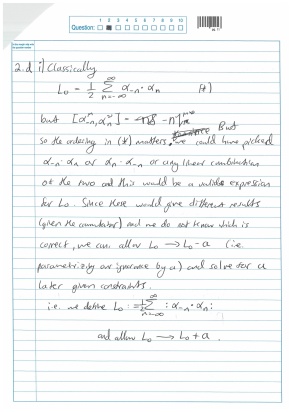 1 2 3 4 5 6 7 8 9 10
Question:
2.d i) Classically
L₀ = 1/2 ∑_{n=-∞}^{∞} α₋ₙ · αₙ (*)
but
But
so the ordering in (*) matters, we could have picked
α₋ₙ αₙ or αₙ · α₋ₙ or any linear combination
of the two and this would be a valid expression
for L₀. Since these would give different results
(given the commutator) and we do not know which is
correct, we can allow L₀ → L₀ - a (i.e.
parametrizing our ignorance by a) and solve for a
later given constraints.
i.e. we define L₀ := 1/2 ∑_{n=-∞}^{∞} : α₋ₙ · αₙ :
and allow L₀ → L₀ + a.